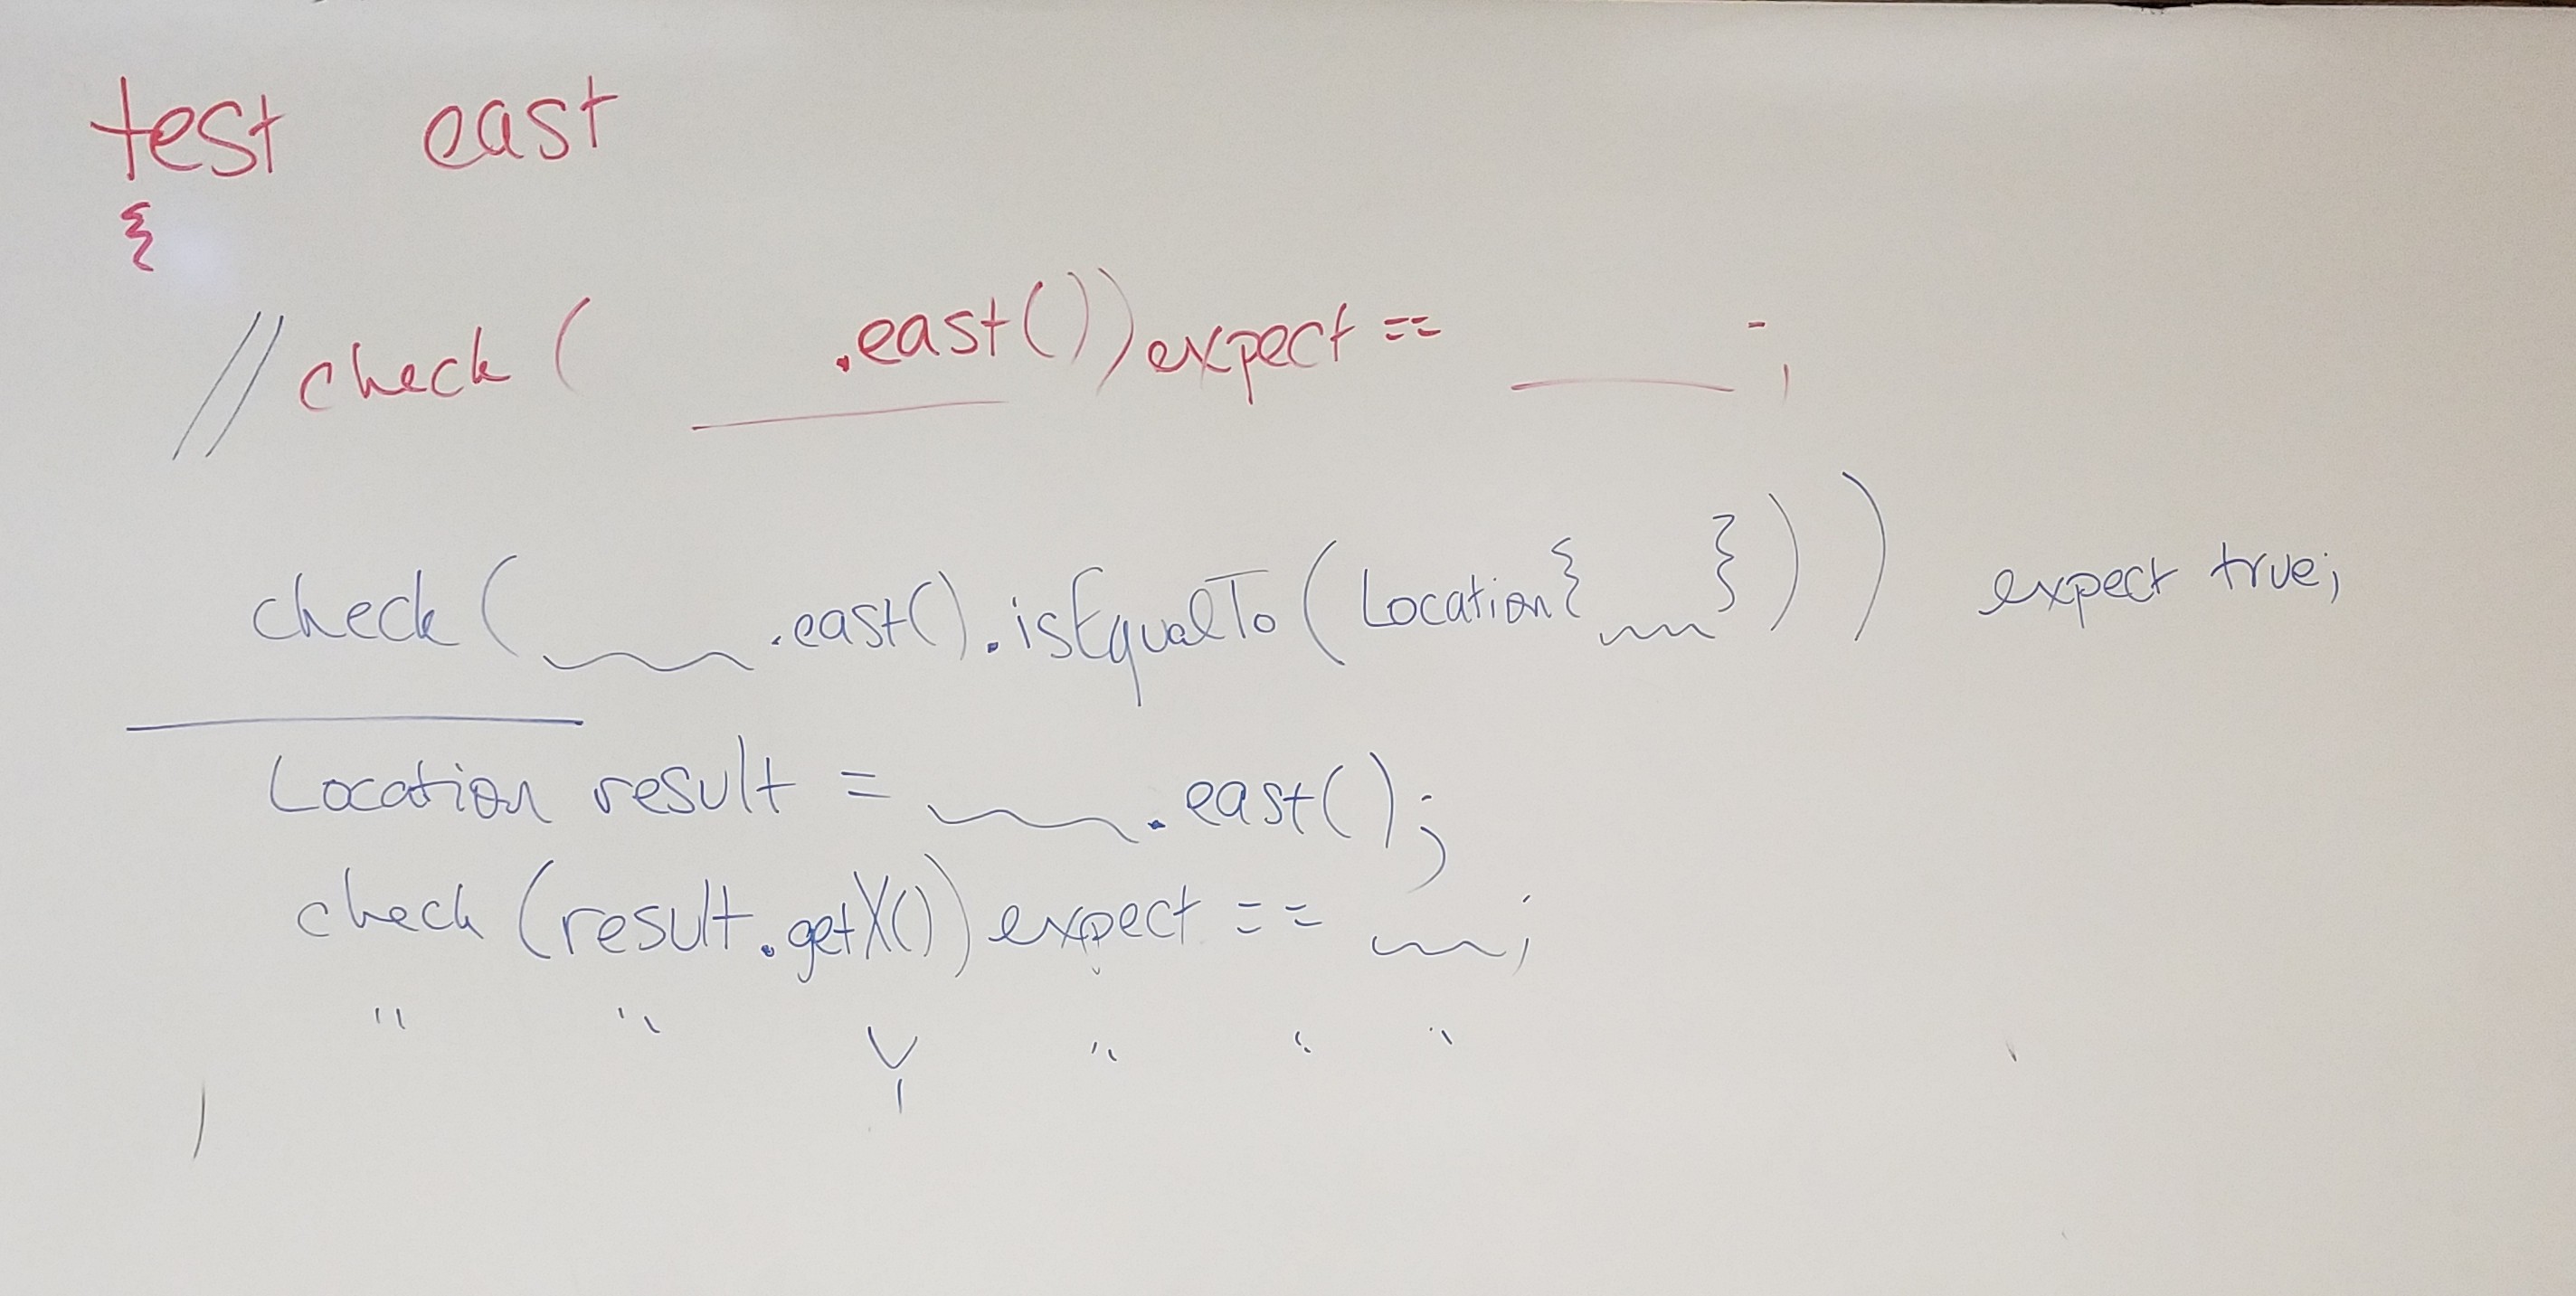 test east
{
//check ( ____.east()) expect == ____;
check (____.east().isEqualTo(Location{____})) expect true;
Location result = ____.east();
check (result.getX()) expect == ____;
" " Y " " "